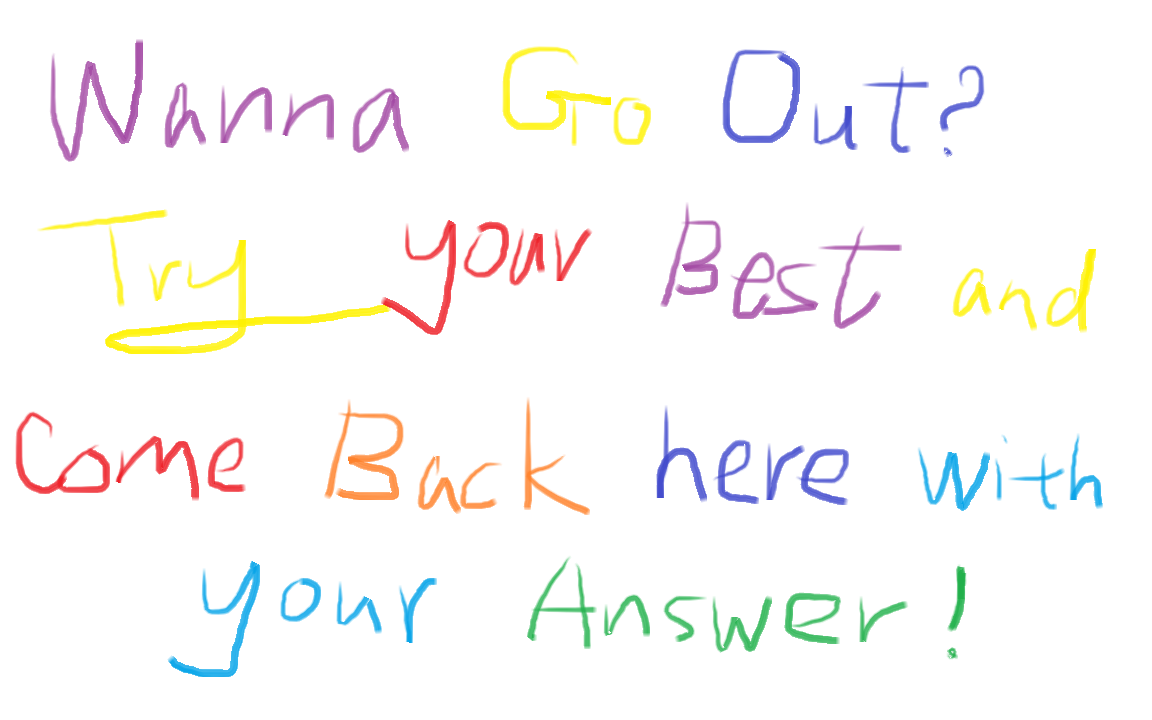 Wanna Go Out?
Try your Best and
Come Back here with
your Answer!